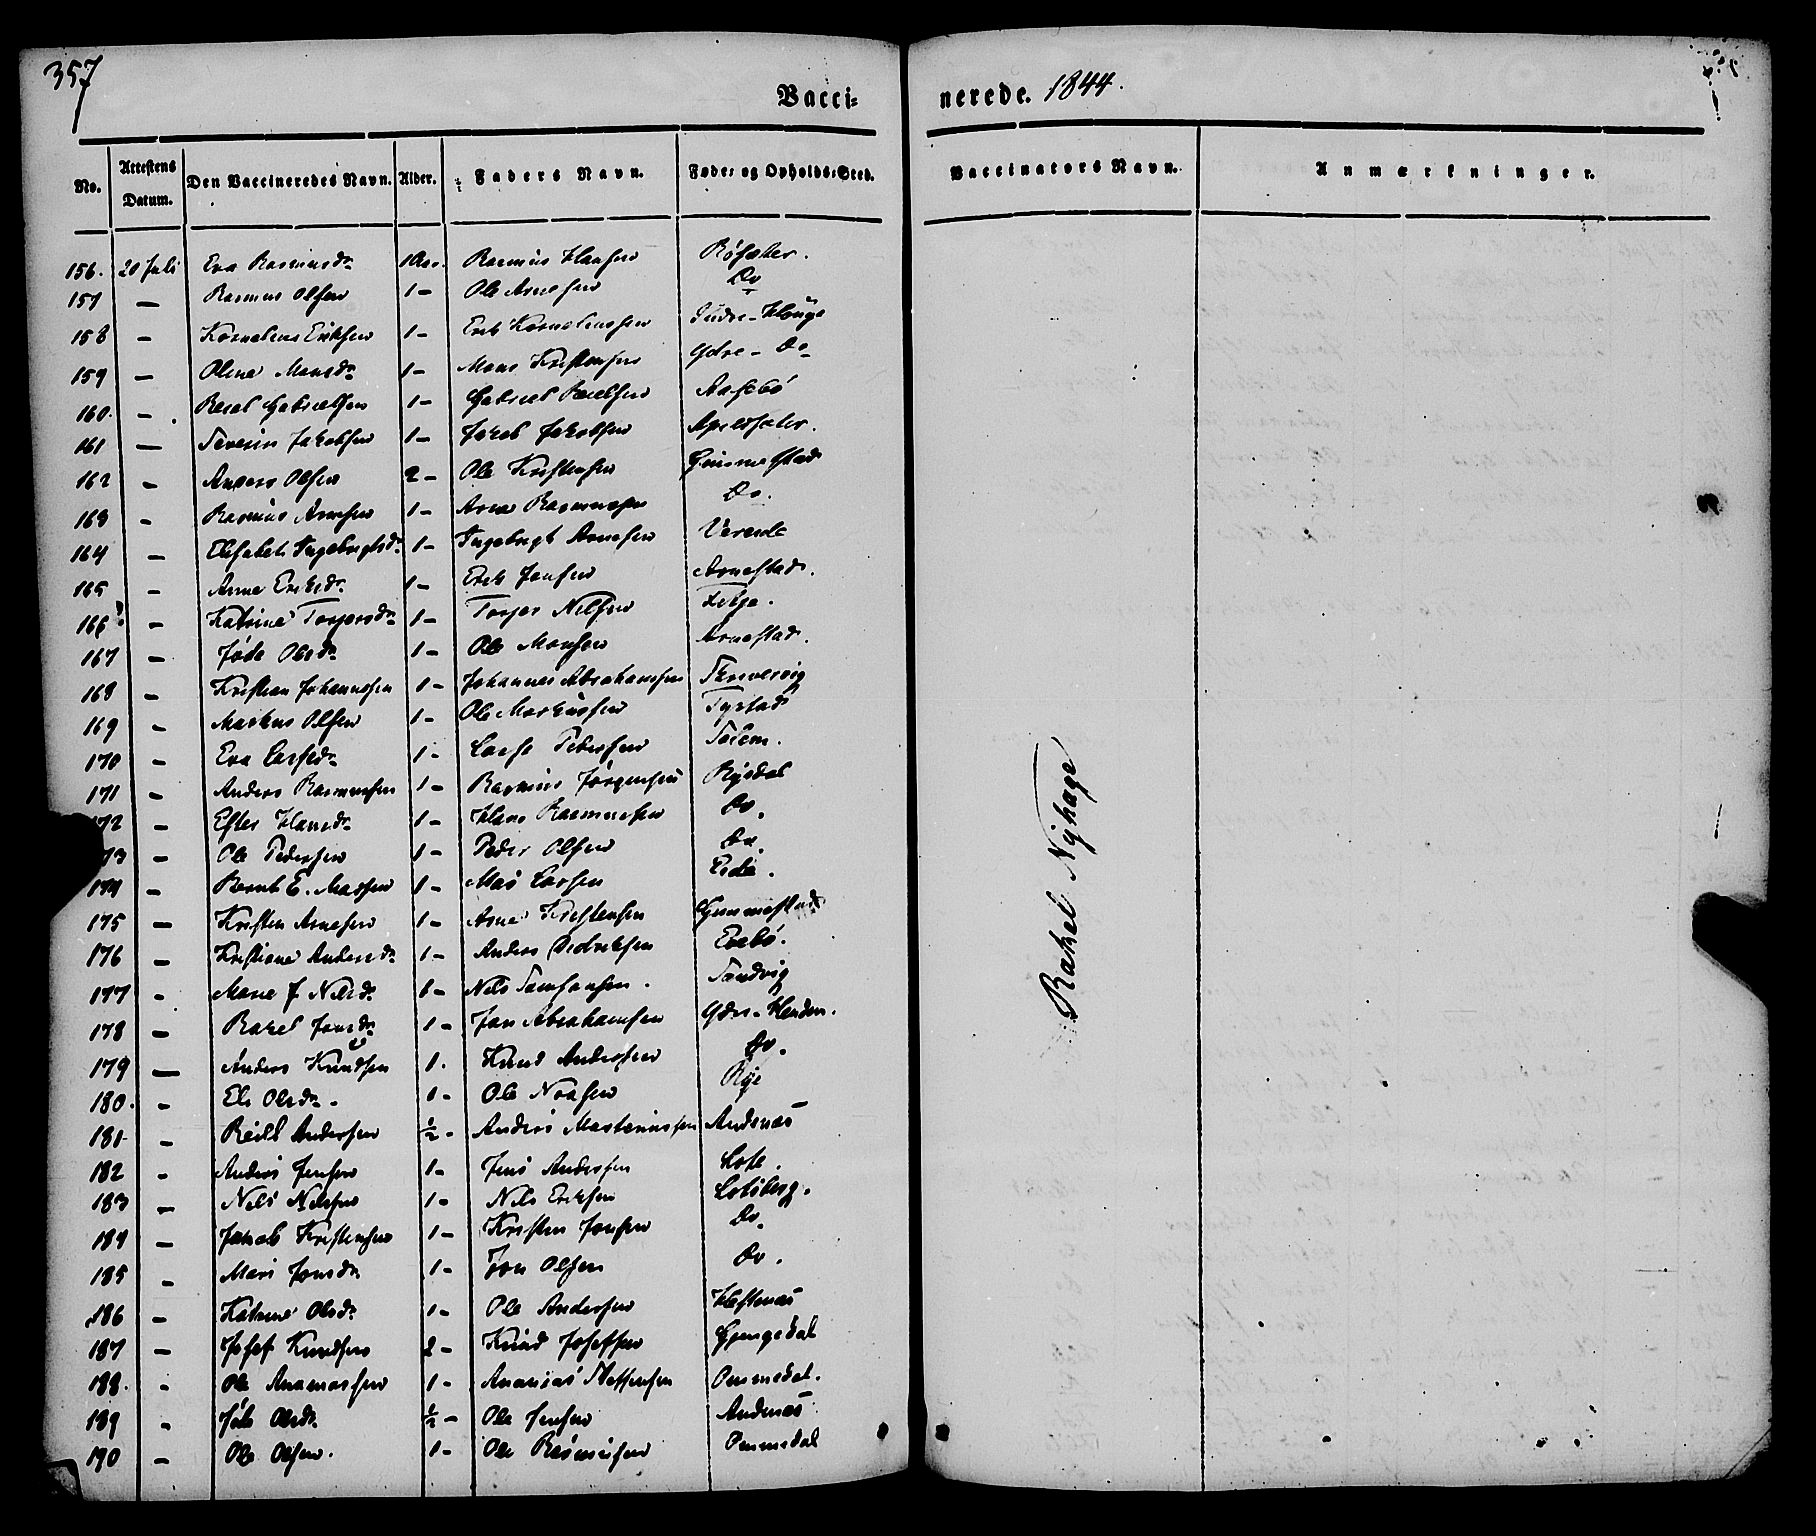 357
Vacci- nerede. 1844.
No. Attestens Datum. Den Vaccineredes Navn. Alder. Faders Navn. Føde- og Opholds-Sted. Vaccinators Navn. Anmærkninger.
156. 20 Juli Eva Rasmusdr. 1 Aar. Rasmus Hansen Røfæter.
157 — Rasmus Olsen 1 — Ole Arnesen Do
158 — Kornelius Eriksen 1 — Erik Korneliussen Indre-Hõuge
159 — Oline Monsdr. 1 — Mons Kristensen Ydre- Do
160. — Gabrielsen 1 — Gabriel Aasebø
161 — Severin Jakobsen 1 — Jakob Jakobsen Apeldsæter.
162 — Anders Olsen 2 — Ole Kristensen Gimmestad
163 — Rasmus Arnesen 1 — Arne Rasmusen Do.
164 — Elisabet Ingebrigtsdr. 1 — Ingebrigt Arnesen Vereide
165 — Anne Eriksdr. 1 — Erik Jensen Arnestad.
166 — Katrine Torgersdr. 1 — Torger Nilsen Fitje.
167 — Jøde Olsdr. 1 — Ole Monsen Arnestad.
168 — Kristian Johannessen 1 — Johannes Abrahamsen Skrivervig
169 — Markus Olsen 1 — Ole Markussen Tystad
170 — Eva Larsdr. 1 — Lars Pedersen Solem.
171 — Anders Rasmussen 1 — Rasmus Jørgensen Rysdal
172 — Ester Hansdr. 1 — Hans Rasmussen Do.
173 — Ole Pedersen 1 — Peder Olsen Do.
174 — Bernt E. Massen 1 — Mas Larsen Eide.
175 — Kristen Arnesen 1 — Arne Kristensen Gimmestad
176 — Kristiane Andersdr. 1 — Anders Didriksen Evebø.
177 - Marie J Nilsdr. 1 — Nils Samsonsen. Sandvig
178 — Rakel Jonsdr. 1 — Jon Abrahamsen Ydre-Henden.
179 — Anders Knudsen 1. Knud Andersen Do.
180. — Eli Olsdr. 1 — Ole Noasen Rye
181 — Andersen ½ — Anders Martinussen Andenæs
182 - Anders Jensen 1 — Jens Andersen Lote.
183 — Nils Nilsen 1 — Nils Eriksen Lotsberg.
184 — Jakob Kristensen 1 — Kristen Jonsen Do.
185 — Mari Jonsdr. 1 — Jon Olsen Do.
186 — Katrine Olsdr. 1 — Ole Andersen Hestenæs
187 — Josef Knudsen 2 — Knud Josefsen Gjengedal
188. - Ole Ananiassen 1 — Ananias Steffensen Ommedal.
189 - Olsdr. ½ — Ole Jensen Andenæs
190 — Ole Olsen. 1 — Ole Rasmusen Ommedal
Rakel Nyhage